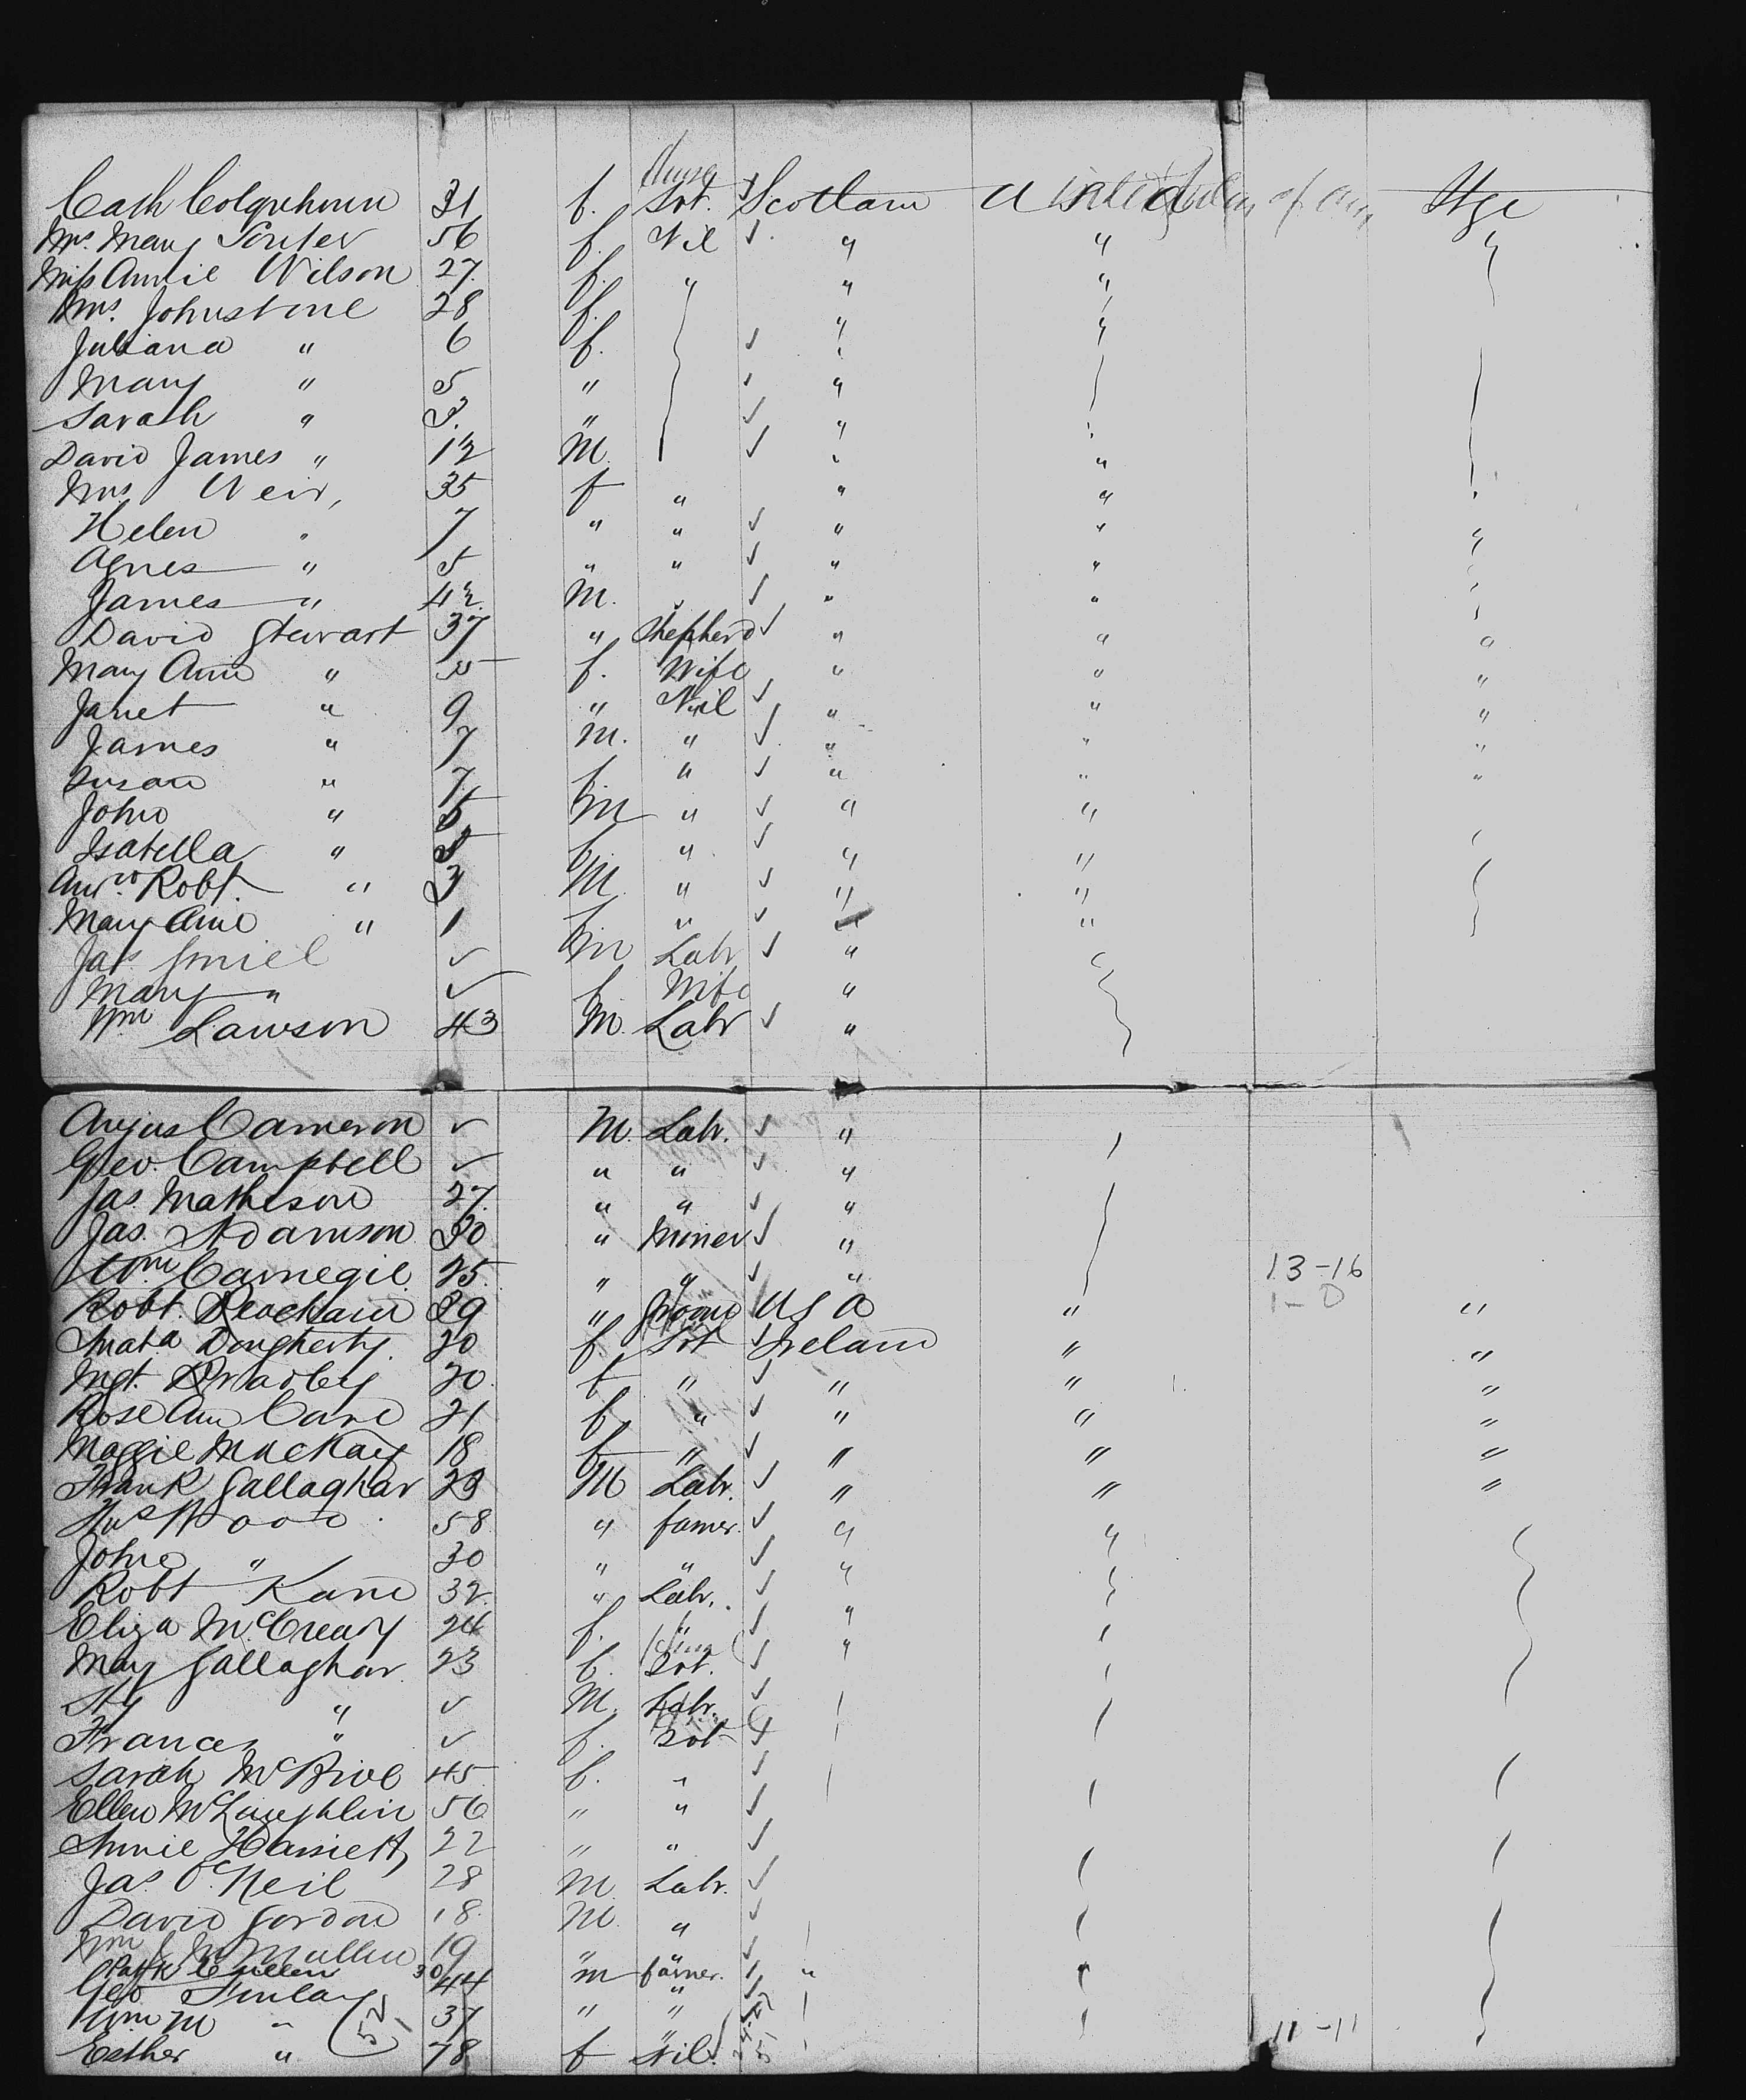 Cath Colquhoun 21 f. Svt. Scotland U S A Stge
Mrs. Mary Souter 56 f. Nil ✓ " " "
Miss Annie Wilson 27 f. " " "
Mrs. Johnstone 28 f. " "
Juliana " 6 f. ✓ "
Mary " 5 " ✓ "
Sarah " 3. " ✓ "
David James " 1½ M. ✓ " "
Mrs Weir, 35 f " " "
Helen " 7 " " ✓ " " "
Agnes " 5 " " ✓ " "
James " 4½ M. " ✓ " "
David Stewart 37 " Shepherd ✓ " " "
Mary Ann " f. Wife " " "
Janet " 9 " Nil ✓ " " "
James " 7 M. " ✓ " " "
Susan " 7 f. " ✓ " " "
John " 5 M " ✓ " "
Isabella " f. " ✓ " "
Andw. Robt. " 3 M " ✓ " "
Mary Ann " 1 f. " ✓ " "
Jas ✓ M Labr ✓ "
Mary " ✓ f. Wife "
Wm Lawson 43 M. Labr ✓ "
Angus Cameron ✓ M. Labr. ✓ "
Geo. Campbell ✓ " " ✓ "
Jas Matheson 27. " " ✓ "
Jas. Adamson 30 " Miner ✓ "
Wm Carnegie 25. " " ✓ " 13-16
Robt. 29 " Groom U S A " "
Dougherty. 20 f. Svt ✓ Ireland " "
Mgt. Bradley 20. f " ✓ " " "
Rose Ann 21 f " ✓ " " "
Maggie MacKay 18 f " ✓ " " "
Frank Gallaghar 23 M Labr. ✓ " " "
Wood 58 " famer. ✓ " "
John " 30 " " ✓ "
Robt Kane 32 " Labr. ✓
Eliza McCreary 24 f. " ✓ "
May Gallaghar 23 f. Svt. ✓ "
" ✓ M. Labr. ✓
Frances " ✓ f. Svt ✓
Sarah McBride 45 f. " ✓
Ellen McLaughlin 56 " " ✓
Annie 22 " " ✓
Jas. O'Neil 28 M Labr. ✓
David Gordon 18. M. " ✓
Wm J McMullen 19 " " ✓
Patk Cullen 30 m farmer. ✓ "
Geo Finlay 44 " ✓
Wm M " 37 " "
Esther " 78 f Nil. 11-11